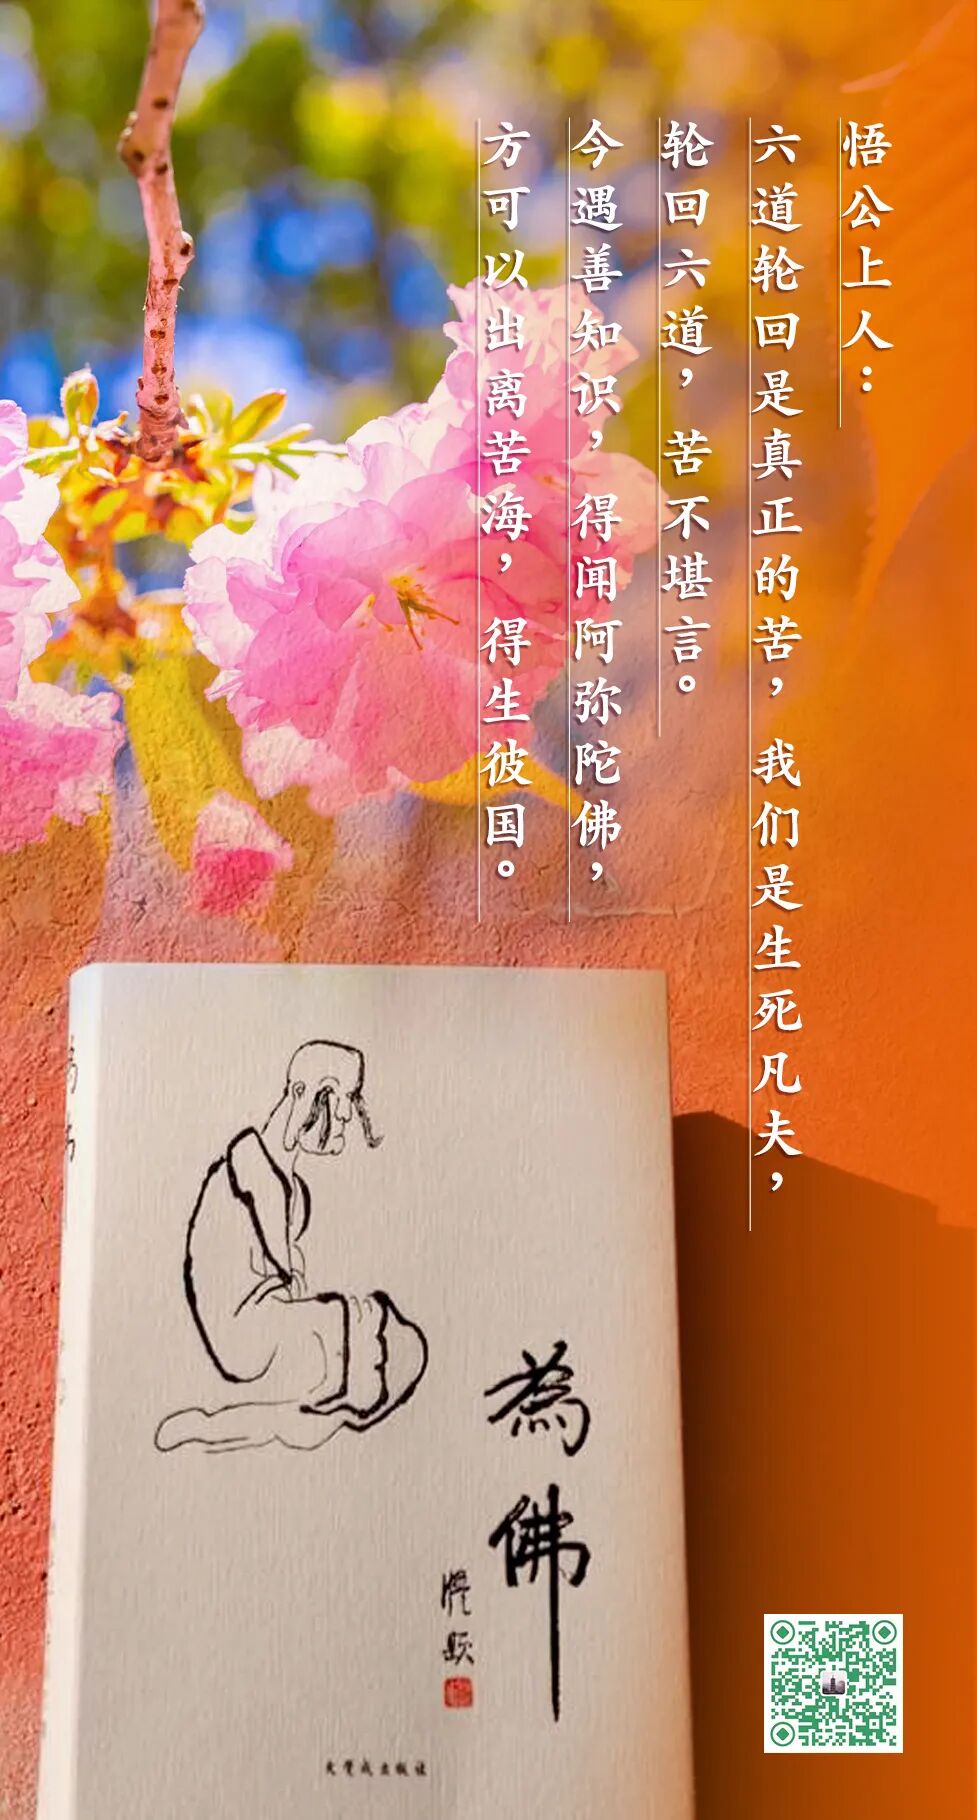 悟公上人：
六道轮回是真正的苦，我们是生死凡夫，
轮回六道，苦不堪言。
今遇善知识，得闻阿弥陀佛，
方可以出离苦海，得生彼国。
為佛